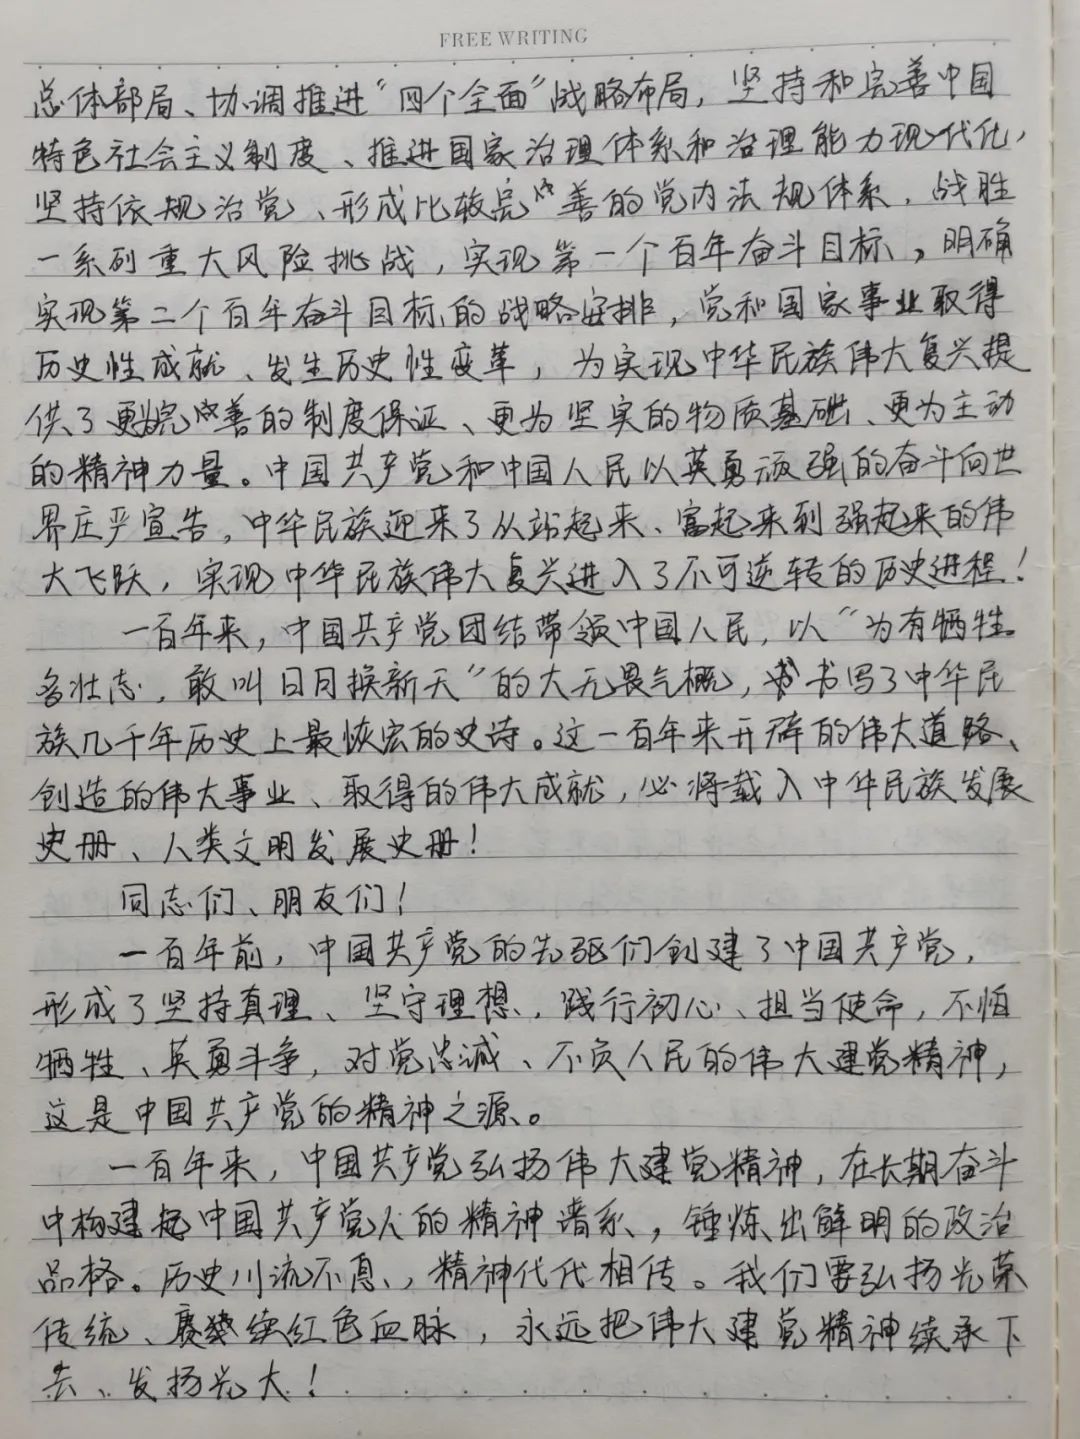 FREE WRITING
总体部局、协调推进“四个全面”战略布局，坚持和完善中国
特色社会主义制度、推进国家治理体系和治理能力现代化，
坚持依规治党、形成比较完善的党内法规体系，战胜
一系列重大风险挑战，实现第一个百年奋斗目标，明确
实现第二个百年奋斗目标的战略安排，党和国家事业取得
历史性成就、发生历史性变革，为实现中华民族伟大复兴提
供了更为完善的制度保证、更为坚实的物质基础、更为主动
的精神力量。中国共产党和中国人民以英勇顽强的奋斗向世
界庄严宣告，中华民族迎来了从站起来、富起来到强起来的伟
大飞跃，实现中华民族伟大复兴进入了不可逆转的历史进程！
一百年来，中国共产党团结带领中国人民，以“为有牺牲
多壮志，敢叫日月换新天”的大无畏气概，书写了中华民
族几千年历史上最恢宏的史诗。这一百年来开辟的伟大道路、
创造的伟大事业、取得的伟大成就，必将载入中华民族发展
史册、人类文明发展史册！
同志们、朋友们！
一百年前，中国共产党的先驱们创建了中国共产党，
形成了坚持真理、坚守理想，践行初心、担当使命，不怕
牺牲、英勇斗争，对党忠诚、不负人民的伟大建党精神，
这是中国共产党的精神之源。
一百年来，中国共产党弘扬伟大建党精神，在长期奋斗
中构建起中国共产党人的精神谱系，锤炼出鲜明的政治
品格。历史川流不息，精神代代相传。我们要弘扬光荣
传统、赓续红色血脉，永远把伟大建党精神续承下
去、发扬光大！